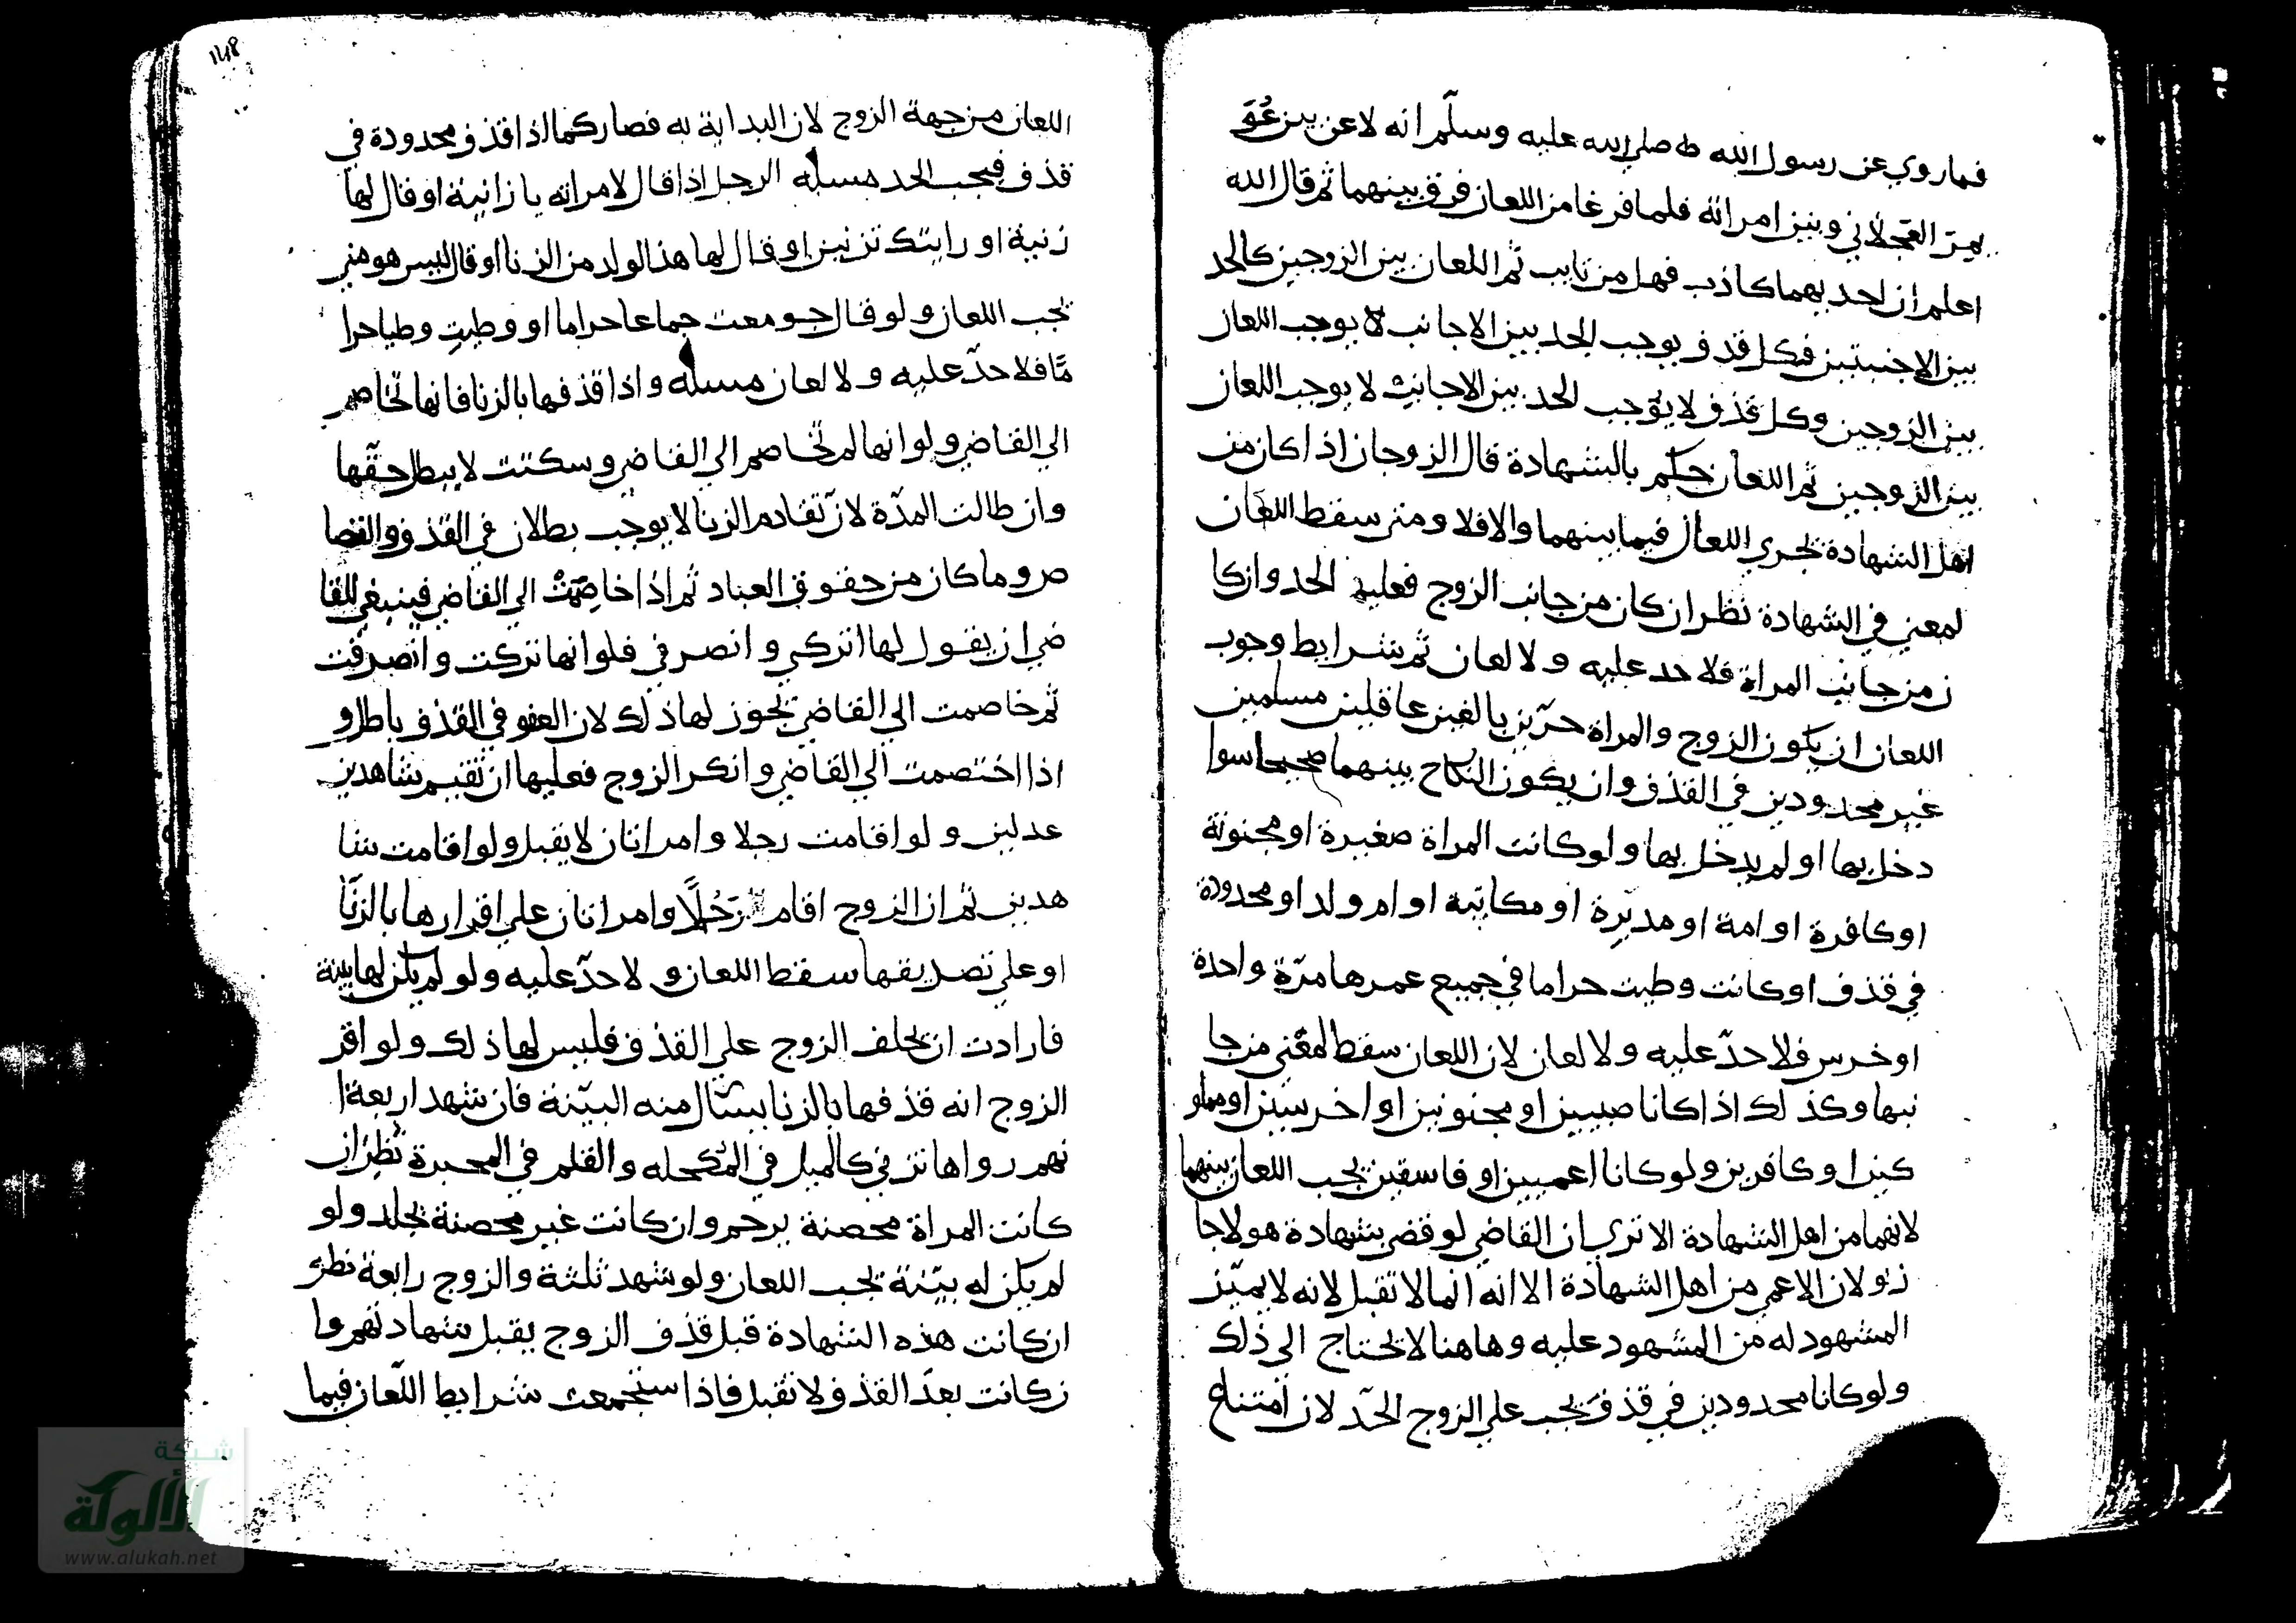 فما روي عن رسول الله صلى الله عليه وسلّم انه لاعن بين عُوَ
يمر العجلاني وبين امراته فلما فرغا من اللعان فرق بينهما ثم قال الله
اعلم ان احديهما كاذب فهل من تايب ثم اللعان بين الزوجين كالحد
بين الاجنبتين فكل قذف يوجب الحد بين الاجانب لا يوجب اللعان
بين الزوجين وكل قذف لا يوجب الحد بين الاجانب لا يوجب اللعان
بين الزوجين ثم اللعان حكم بالشهادة قال الزوجان اذا كان من
اهل الشهادة يجري اللعان فيما بينهما والا فلا ومتى سقط اللعان
لمعني في الشهادة نظر ان كان من جانب الزوج فعليه الحد وان كا
ن من جانب المراة فلا حد عليه ولا لعان ثم شرايط وجوب
اللعان ان يكون الزوج والمراة حرّين بالغين عاقلين مسلمين
غير محدودين في القذف وان يكون النكاح بينهما صحيحا سوا
دخل بها او لم يدخل بها ولو كانت المراة صغيرة او مجنونة
او كافرة او امة او مدبّرة او مكاتبة او ام ولد او محدودة
في قذف او كانت وطيت حراما في جميع عمرها مرّة واحدة
او خرس فلا حدّ عليه ولا لعان لان اللعان سقط لمعني من جا
نبها وكذلك اذا كانا صبيين او مجنونين او اخرسين او مملو
كين او كافرين ولو كانا اعميين او فاسقين يجب اللعان بينهما
لانهما من اهل الشهادة الا تري ان القاضي لو قضي بشهادة هولا جا
ز ولان الاعمي من اهل الشهادة الا انه انما لا تقبل لانه لا يميّز
المشهود له من المشهود عليه وهاهنا لا يحتاج الى ذلك
ولو كانا محدودين في قذف يجب علي الزوج الحّد لان امتناع
١٤٨
اللعان من جهة الزوج لان البداية به فصار كما اذا قذف محدودة في
قذف فيجب الحد مسله الرجل اذا قال لامراته يا زانية او قال لها
زنية او رايتك تزنين او قال لها هذا الولد من الزنا او قال ليس هو مني
يجب اللعان ولو قال جومعت جماعا حراما او وطيت وطيا حرا
مًا فلا حدّ عليه ولا لعان مسله واذا قذفها بالزنا فانها تخاصم
الي القاضي ولو انها لم تخاصم الي القاضي وسكتت لا يبطل حقّها
وان طالت المدّة لان تقادم الزنا لا يوجب بطلان في القذف والقصا
ص وما كان من حقوق العباد ثم اذا خاصمت الي القاضي فينبغي للقا
ضي ان يقول لها اتركي وانصرفي فلو انها تركت وانصرفت
ثم خاصمت الي القاضي يجوز لها ذلك لان العفو في القذف باطل و
اذا اختصمت الي القاضي وانكر الزوج فعليها ان تقيم شاهدين
عدلين ولو اقامت رجلا وامراتان لا يقبل ولو اقامت شا
هدين ثم ان الزوج اقام رَجُلًا وامراتان علي اقرارها بالزنَا
او علي تصديقها سقط اللعان و لا حدّ عليه ولو لم يكن لها بينة
فارادت ان يحلف الزوج علي القذف فليس لها ذلك ولو اقر
الزوج انه قذفها بالزنا يسال منه البيّنة فان شهد اربعة ا
نهم رواها تزني كالميل في المكحله والقلم في المحبرة نظر ان
كانت المراة محصنة يرجم وان كانت غير محصنة يجلد ولو
لم يكن له بيّنة يجب اللعان ولو شهد ثلثة والزوج رابعة نظر
ان كانت هذه الشهادة قبل قذف الزوج يقبل شهادتهم وا
ن كانت بعد القذف لا تقبل فاذا استجمعت شرايط اللّعان فيما
شبكة
الألوكة
www.alukah.net